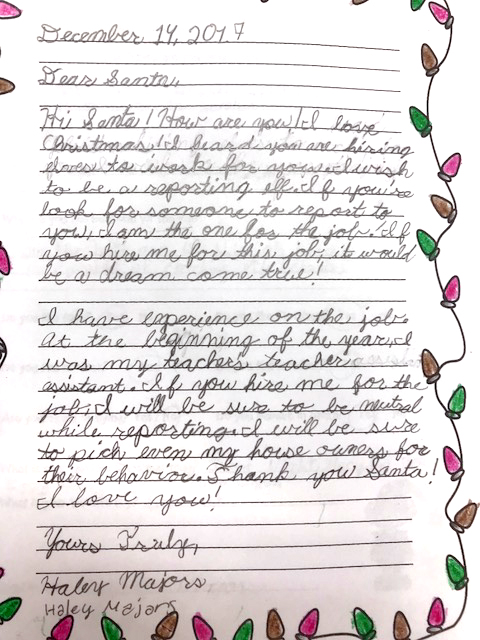 December 14, 2017
Dear Santa,
Hi Santa! How are you! I love
Christmas! I heard you are hiring
elves to work for you. I wish
to be a reporting elf. If you're
look for someone to report to
you, I am the one for the job. If
you hire me for this job, it would
be a dream come true!
I have experience on the job.
At the beginning of the year, I
was my teacher's teacher
assistant. If you hire me for the
job, I will be sure to be neutral
while reporting. I will be sure
to pick even my house owners for
their behavior. Thank you Santa!
I love you!
Yours Truly,
Haley Majors
Haley Majors